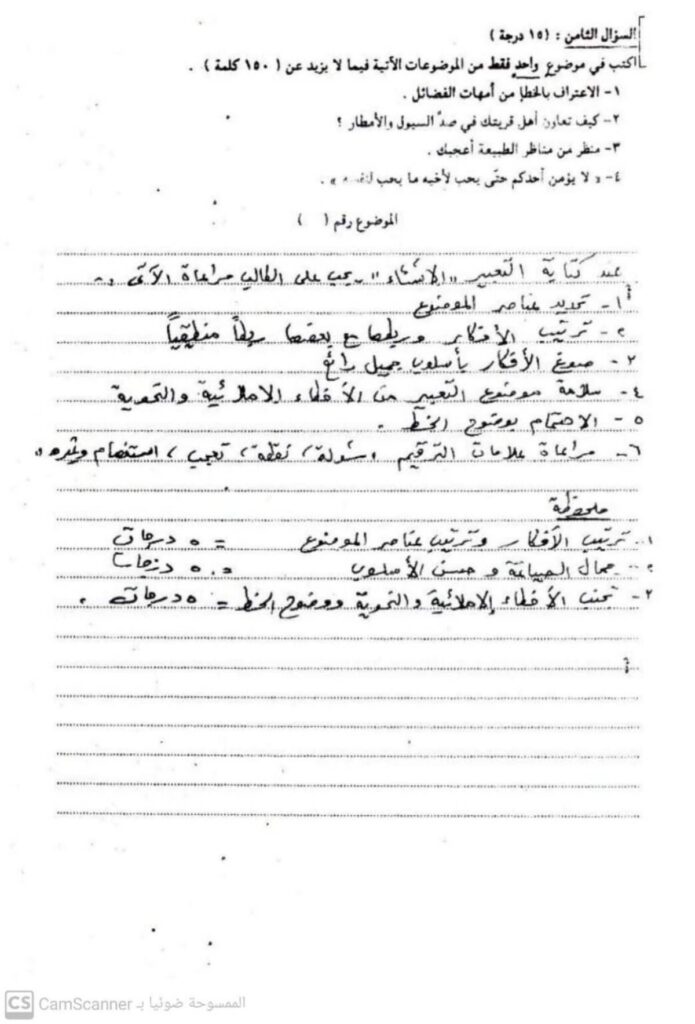 السؤال الثامن : ( ١٥ درجة )
اكتب في موضوع واحد فقط من الموضوعات الآتية فيما لا يزيد عن ( ١٥٠ كلمة ) .
١- الاعتراف بالخطأ من أمهات الفضائل .
٢- كيف تعاون أهل قريتك في صدّ السيول والأمطار ؟
٣- منظر من مناظر الطبيعة أعجبك .
٤- « لا يؤمن أحدكم حتّى يحب لأخيه ما يحب لنفسه » .
الموضوع رقم ( )
عند كتابة التعبير "الإنشاء" يجب على الطالب مراعاة الآتي :-
١- تحديد عناصر الموضوع
٢- ترتيب الأفكار وربطها مع بعضها ربطاً منطقياً
٣- صوغ الأفكار بأسلوب جميل رائع
٤- سلامة موضوع التعبير من الأخطاء الاملائية والنحوية
٥- الاهتمام بوضوح الخط .
٦- مراعاة علامات الترقيم ، شولة ، نقطة ، تعجب ، استفهام وغيره "
ملحوظة
١- ترتيب الأفكار وترتيب عناصر الموضوع = ٥ درجات
٢- جمال الصياغة وحسن الأسلوب = ٥ درجات
٣- تجنب الأخطاء الإملائية والنحوية ووضوح الخط = ٥ درجات .
CS CamScanner الممسوحة ضوئيا بـ